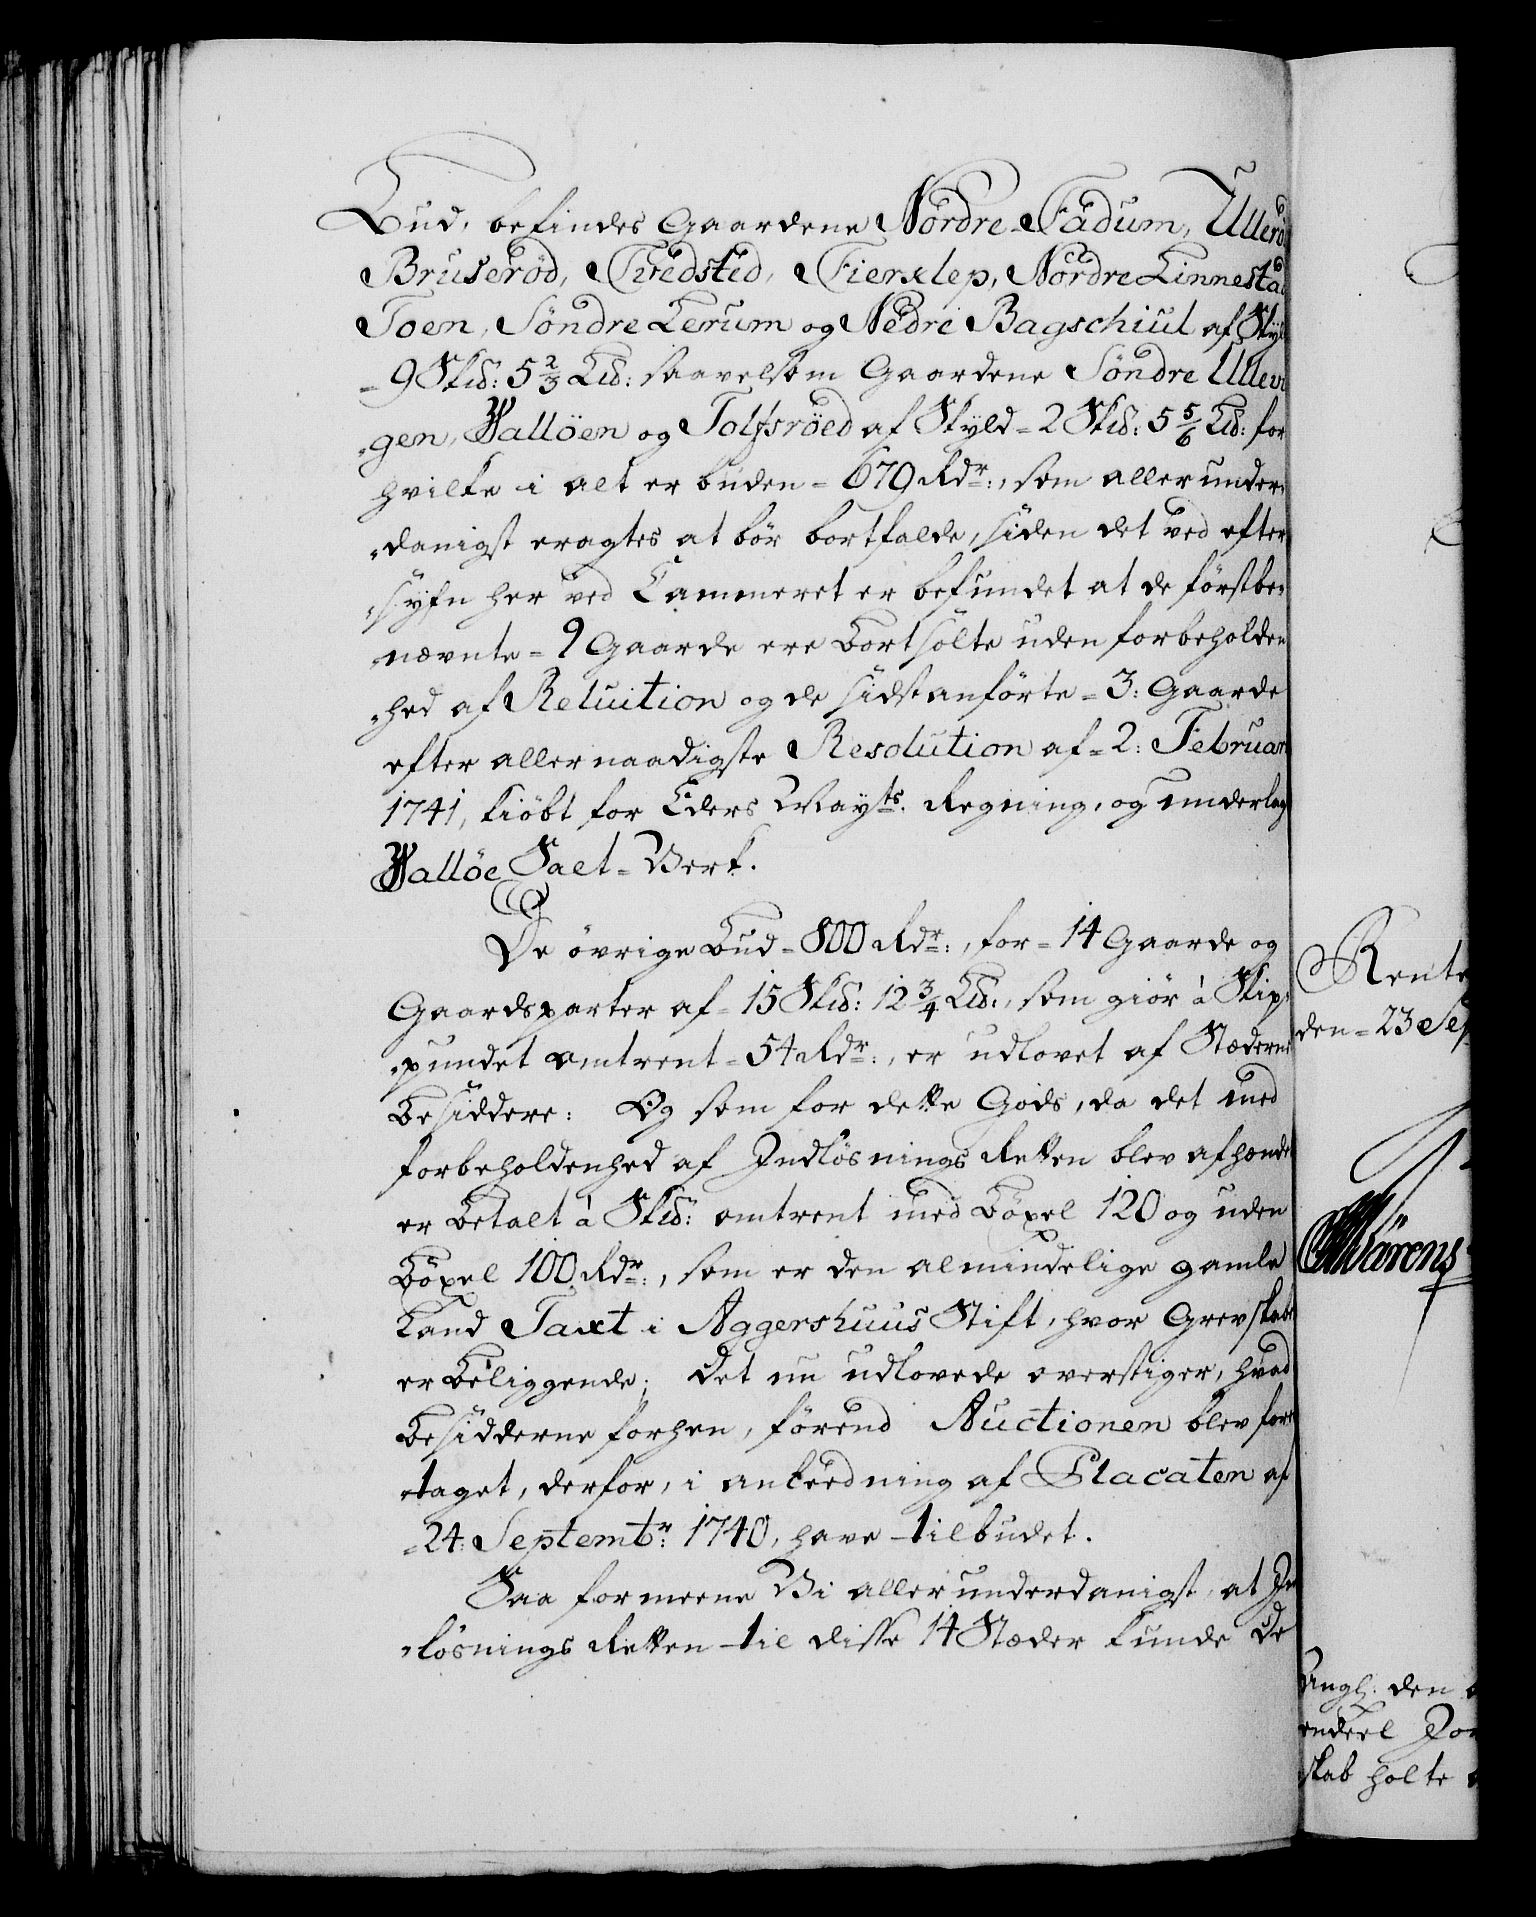 Bud, befindes Gaardene Nordre Fadum, Ullerö
Bruserød, Tvedsted, Fierklep, Nordre Linnestad
Toen, Söndre Lerum og Nedre Bagschiul af Skyl
=9 Sk℔: 5 2/3 L℔: saavelsom Gaardene Söndre Ullevi
„gen, Walløen og Tolfsröed af Skyld = 2 Sk℔: 5 5/6 L℔: for
hvilke i alt er buden = 679 Rdr:, som allerunder„
„danigst eragtes at bör bortfalde, siden det ved efter
„syfn her ved Cammeret er befundet at de förstbe„
nævnte = 9 Gaarde ere bortsolte uden forbeholden
„hed af Reluition og de sidstanförte = 3: Gaarde
efter allernaadigste Resolution af = 2: Februar
1741, kiöbt for Eders Mayts. Regning, og underlag
Walløe Salt = Verk.
De övrige Bud = 800 Rdr:, for = 14 Gaarde og
Gaardsparter af = 15 Sk℔: 12 3/4 L℔:, som giör à Skip„
„pundet omtrent = 54 Rdr:, er udlovet af Stæderne
besiddere: Og som for dette Gods, da det med
forbeholdenhed af Indlösnings Retten blev afhændet
er betalt à Sk℔: omtrent med böxel 120 og uden
böxel 100 Rdr:, som er den almindelige gamle
Land Taxt i Aggershuus Stift, hvor Grevskabet
er beliggende; Det nu udlovede overstiger, hvad
besidderne forhen, förend Auctionen blev fore
„taget, derfor, i anledning af Placaten af
=24: Septembr: 1740, have tilbudet.
Saa formeene Vi allerunderdanigst, at In
„lösnings Retten til disse 14 Stæder kunde De
Rente
den = 23 Sep
Angl: den
endeel For
skab holte